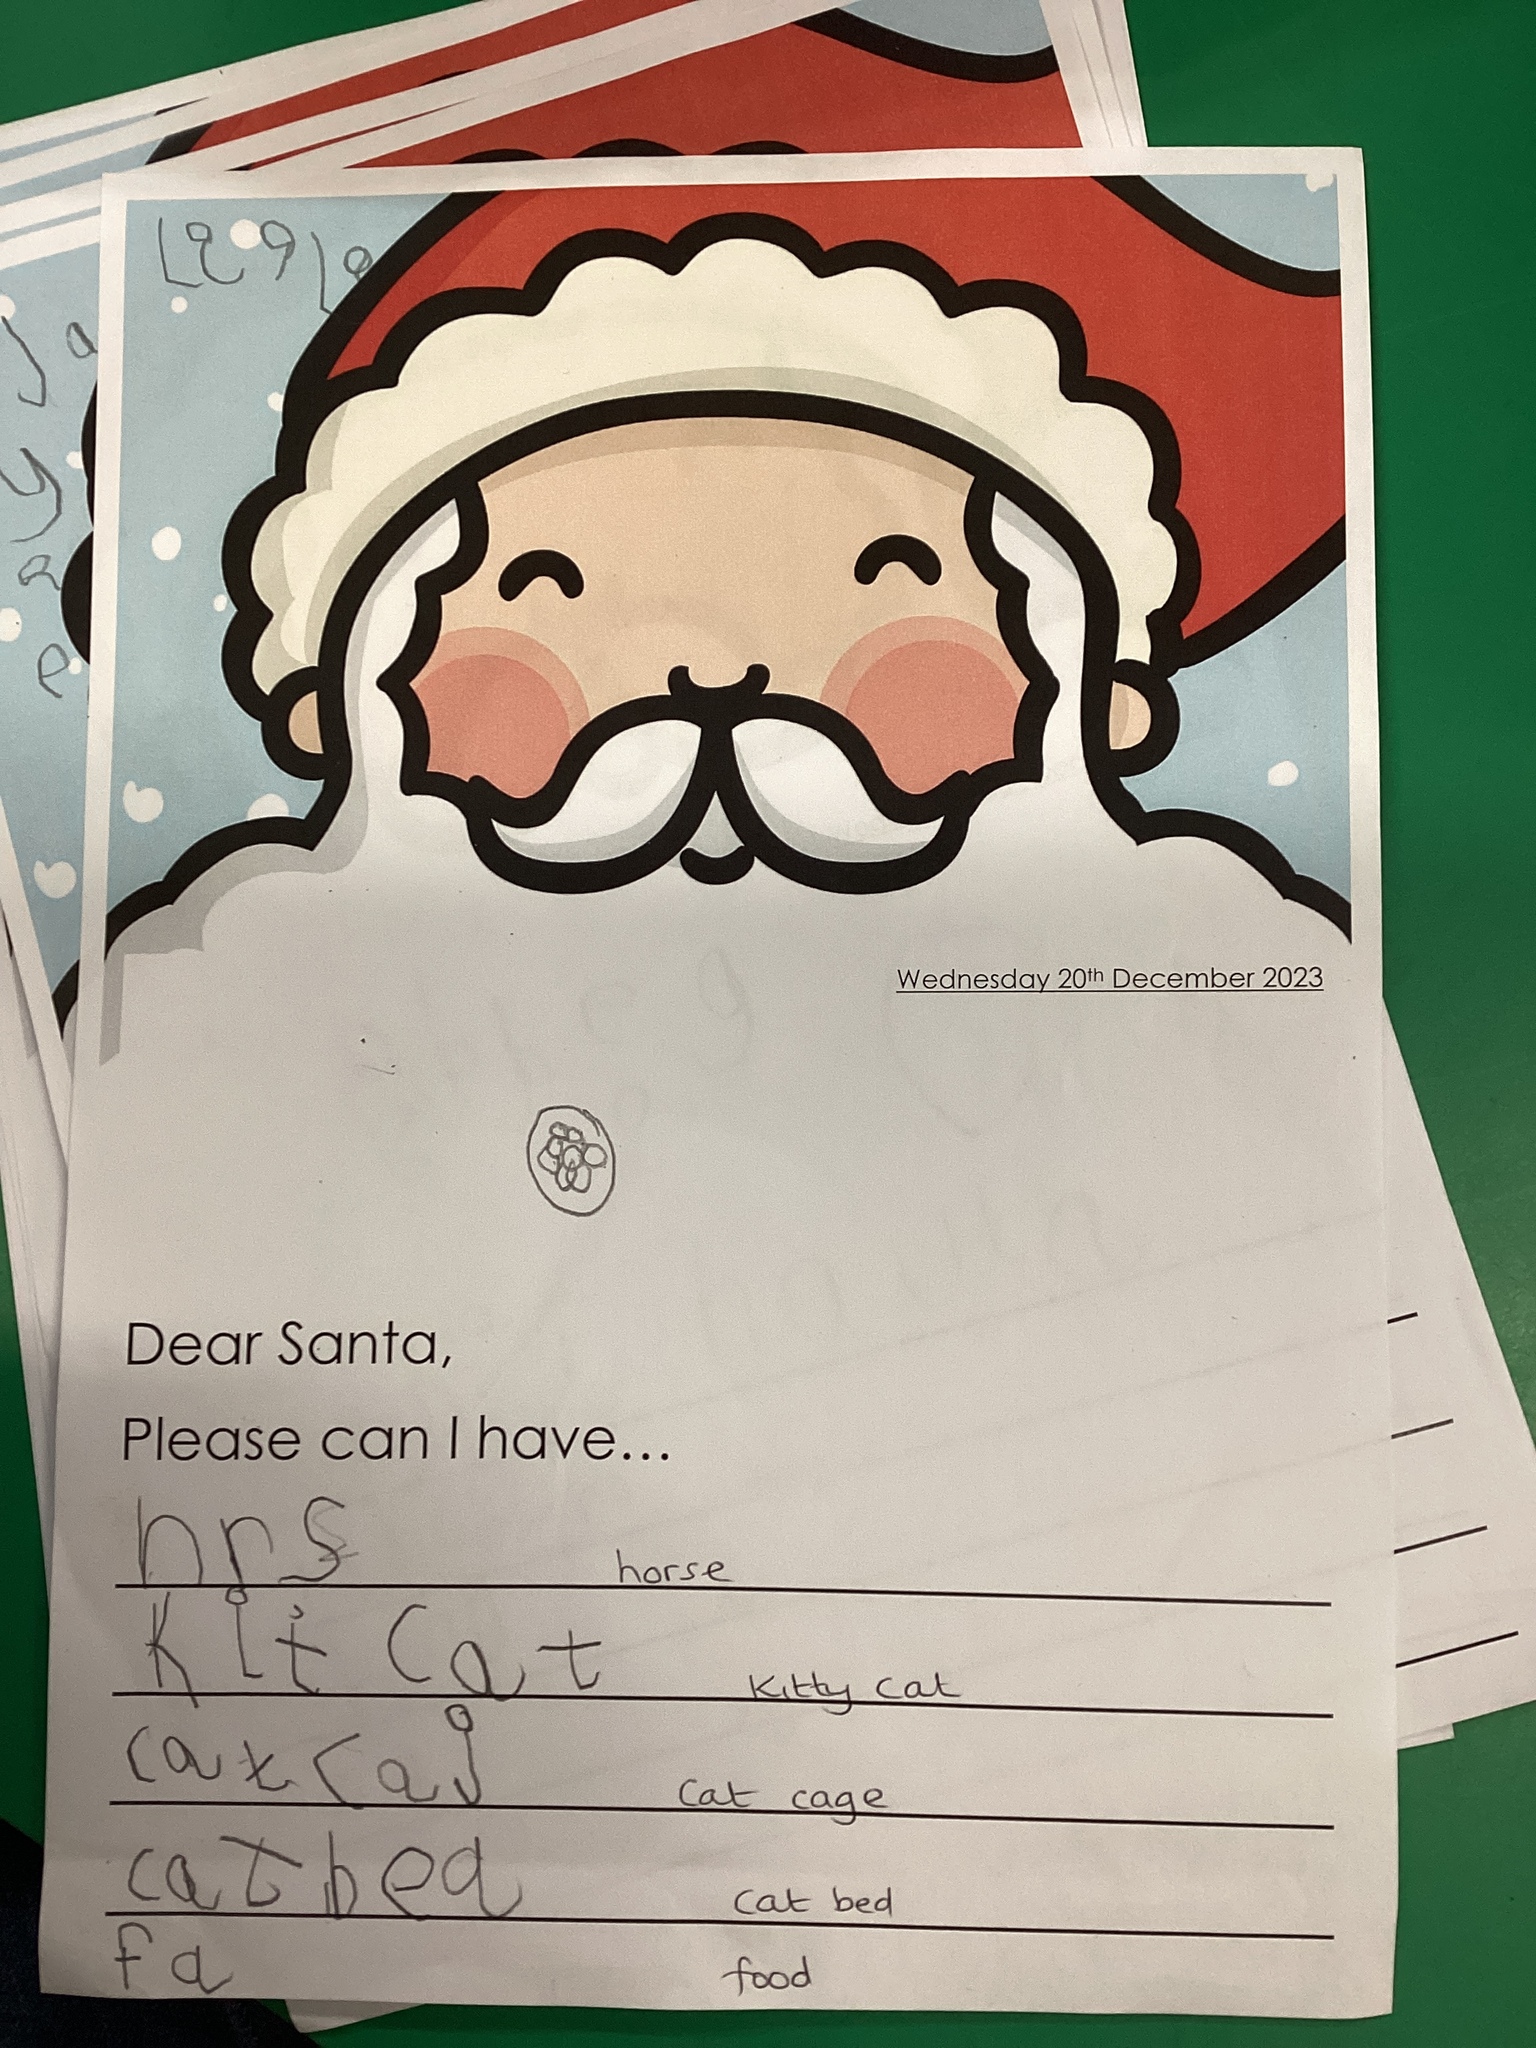 Wednesday 20th December 2023
Dear Santa,
Please can I have...
hrs horse
kit cat kitty cat
cat caj cat cage
cat bed cat bed
fd food